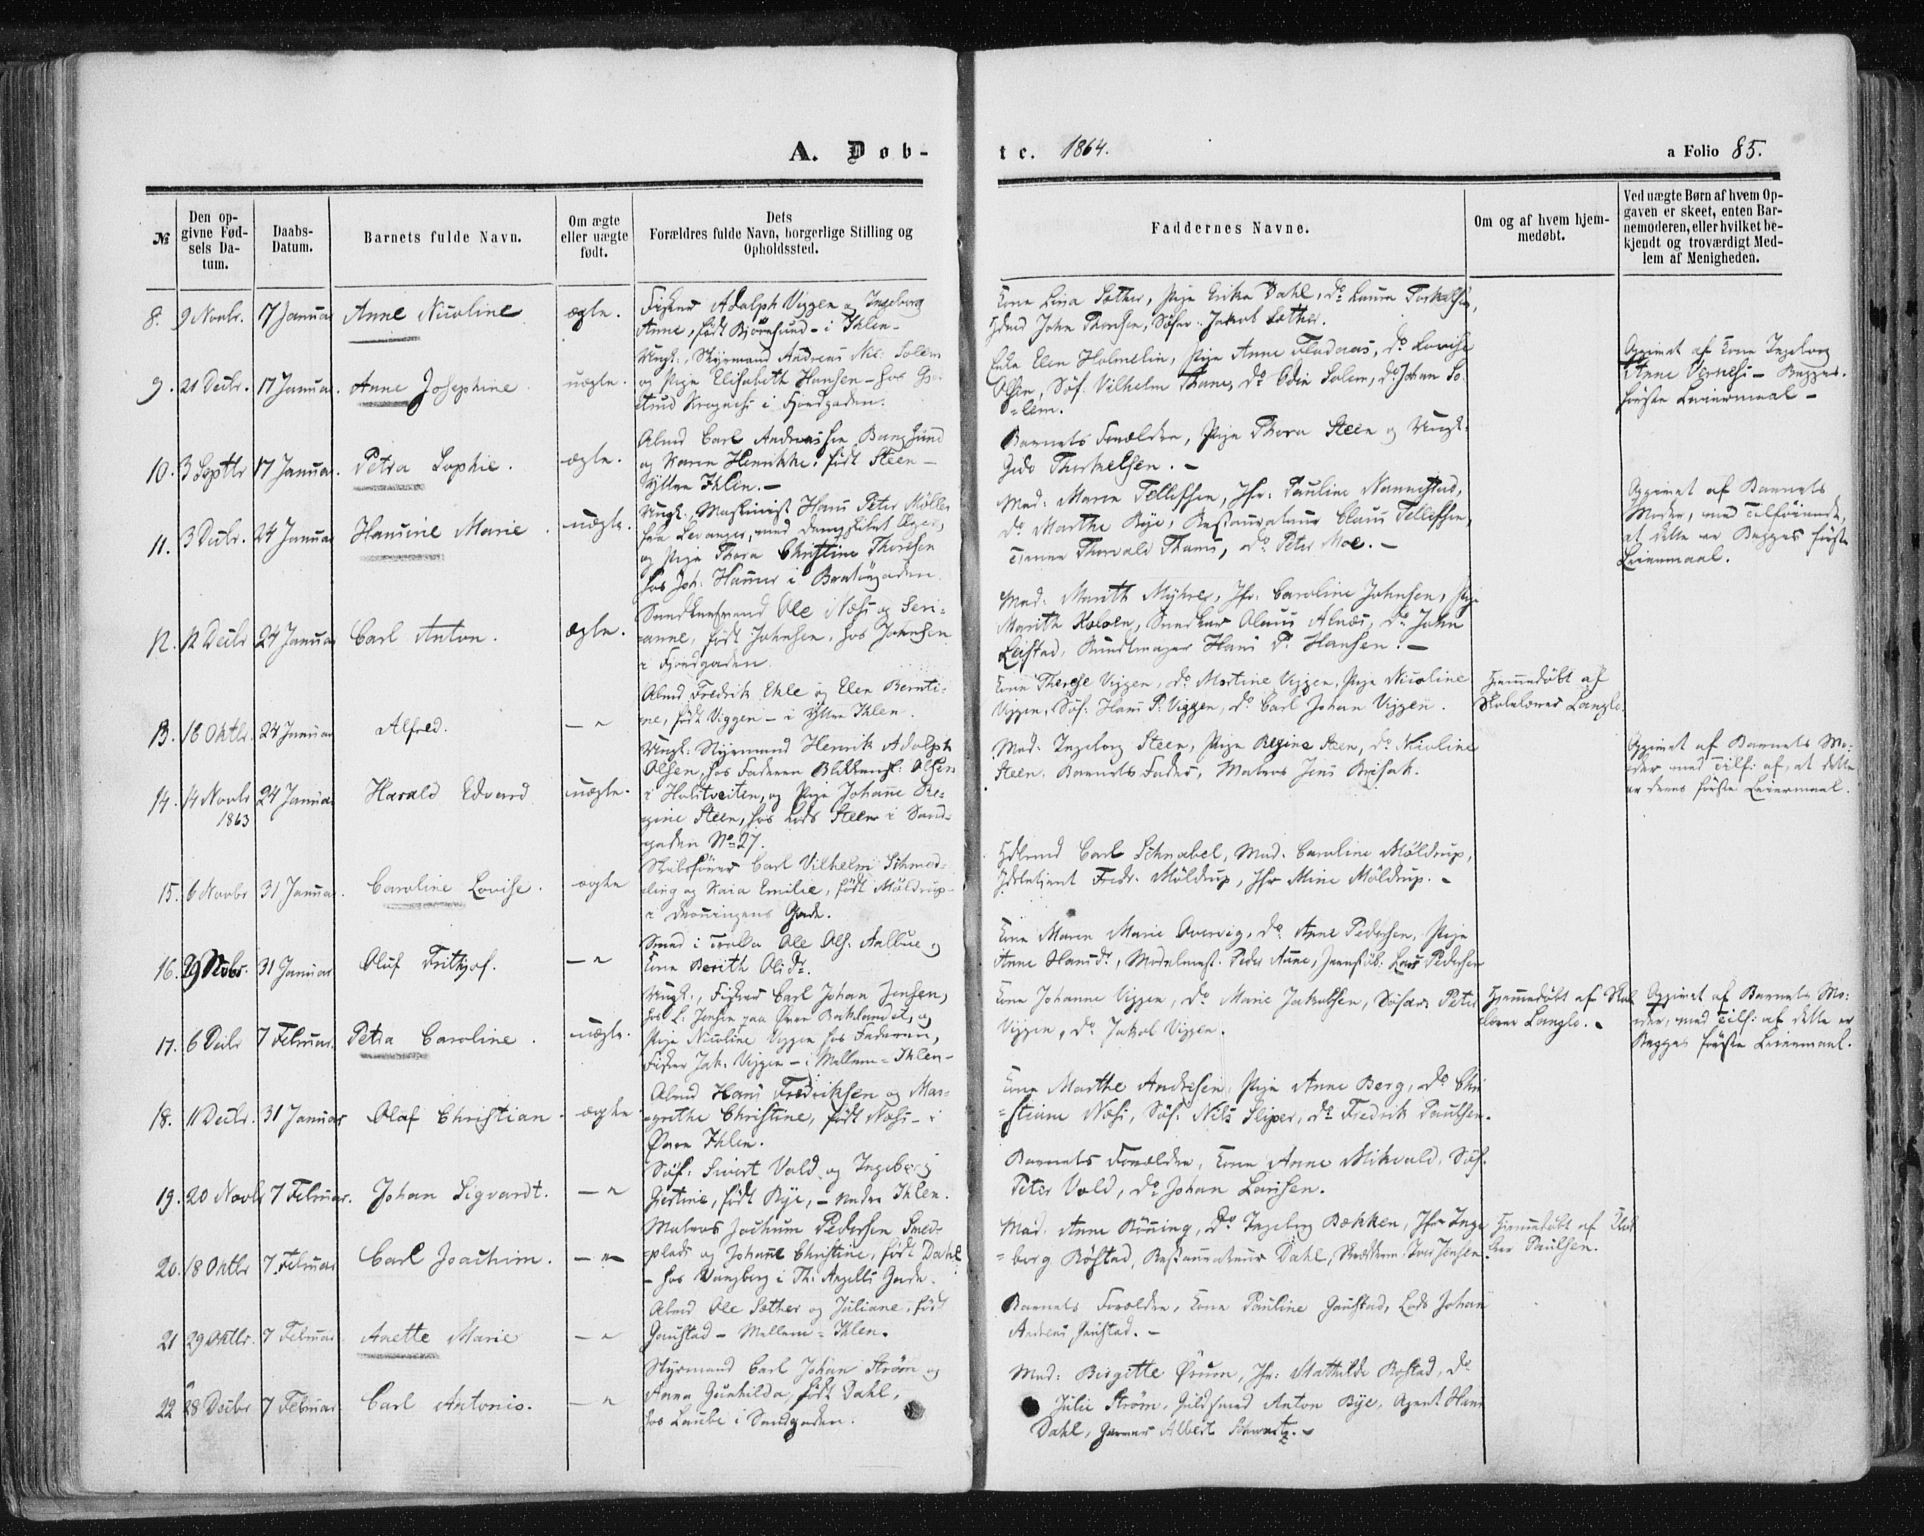 A. Døb-
te. 1864.
a Folio 85.
№
Den op-
givne Fød-
sels Da-
tum.
Daabs-
Datum.
Barnets fulde Navn.
Om ægte
eller uægte
født.
Dets
Forældres fulde Navn, borgerlige Stilling og
Opholdssted.
Faddernes Navne.
Om og af hvem hjem-
medøbt.
Ved uægte Børn af hvem Op-
gaven er skeet, enten Bar-
nemoderen, eller hvilket be-
kjendt og troværdigt Med-
lem af Menigheden.
8. 9 Novbr. 17 Januar Anne Nicoline ægte.
Fisker Adolph Viggen og Ingeborg
Anne, født Bjørnsund - i Ihlen -
Kone Lina Sæther, Pige Erika Dahl, do Laura Torkelsen,
John Thomsen, Søfar. Jakob Sæther.
9. 21 Decbr. 17 Januar. Anne Josephine. uægte.
Ungk., Styrmand Andreas Nic. Solem
og Pige Elisabeth Hansen - hos
i Fjordgaden.
Enke Elen Holmelin, Pige Anne Fladaas, do Lovise
Olsen, Søf. Vilhelm Thane, do Odin Solem, do Johan So-
lem.
Opgivet af Kone Ingeborg
Anne - Begges
første Leiermaal -
10. 3 Septbr 17 Januar. Petra Sophie. ægte.
Arbmd Carl Andreassen Bangsund
og Karen Henrikke, født Steen -
Yttre Ihlen. -
Barnets Forældre, Pige Thora Steen og Ungk.
Thorkelsen. -
11. 3 Decbr. 24 Januar Hansine Marie. uægte.
Ungk., Maskinist Hans Peter Möller
fra Levanger, med Dampskibet
og Pige Thora Christine Thoresen
hos Joh. Hammer i Bratörgaden.
Mad: Maren Tellefsen, Jfr. Pauline Nannestad,
do Marthe Bye, Restaurateur Claus Tellefsen,
Thorvald Thams, do Peter Moe. -
Opgivet af Barnets
Moder, med Tilföiende,
at dette er Begges første
Leiermaal.
12. 12 Decbr 24 Januar Carl Anton. ægte.
Ole Næss og Seri-
anne, født Johnsen, hos Johnsen
i Fjordgaden.
Mad: Marith Myhrer, Jfr. Caroline Johnsen, Pige
Marith Kolden, Snedker Alnæs, do John
Leistad, Bundtmager Hans P. Hansen. -
13. 16 Oktbr. 24 Januar Alfred. - "
Arbmd Fredrik Ekle og Elen Bernti-
ne, født Viggen - i Yttre Ihlen.
Kone Therese Viggen, do Martine Viggen, Pige Nicoline
Viggen, Søf. Hans P. Viggen, do Carl Johan Viggen.
Hjemmedøbt af
Skolelærer Langlo.
14. 14 Novbr 1863 24 Januar Harald Edvard. uægte.
Ungk. Styrmand Henrik Adolph
Olsen, hos Faderen Olsen
i Holstveiten, og Pige Johanne Re-
gine Steen, hos Lods Steen i Sand-
gaden No 27.
Mad. Ingeborg Steen, Pige Regine Steen, do Nicoline
Steen, Barnets Fader, Matros Jens Brisak.
Opgivet af Barnets Mo-
der med Tilf: af, at dette
er deres første Leiermaal.
15. 6 Novbr 31 Januar. Caroline Lovise. ægte
Skibsfører Carl Vilhelm Schmed-
ling og Kaia Emilie, født Möldrup
i Dronningens Gade.
Carl Schnabel, Mad. Caroline Möldrup,
Fredr. Möldrup, Jfr Mine Möldrup. -
16. 29 Novbr. 31 Januar Oluf Frithjof. - "
Smed i Ole Ols. Aalbue og
Kone Berith Olsdr.
Kone Maren Marie Overvig, do Anne Pedersen, Pige
Anne Hansdr, Peder Aune, Lars Pedersen
17. 6 Decbr 7 Februar. Petra Caroline. uægte.
Ungk., Fisker Carl Johan Jensen,
hos L. Jensen paa Øvre Baklandet, og
Pige Nicoline Viggen hos Faderen,
Fisker Jak. Viggen - i Mellem-Ihlen -
Kone Johanne Viggen, do Marie Jakobsen, Søfar. Peter
Viggen, do Jakob Viggen.
Hjemmedøbt af Skol-
lærer Langlo. -
Opgivet af Barnets Mo-
der, med Tilf: at dette er
Begges første Leiermaal.
18. 11 Decbr. 31 Januar Olaf Christian. ægte.
Arbmd Hans Fredriksen og Mar-
grethe Christine, født Næss - i
Øvre Ihlen.
Kone Marthe Andresen, Pige Anne Berg, do Chri-
stiane Næss, Søf. Nils Sliper, do Fredrik Paulsen.
19. 20 Novbr 7 Februar. Johan Sigvardt. - "
Søf. Sivert Vold og Ingeborg
Gjertine, født Bye, - Nedre Ihlen.
Barnets Forældre, Kone Anne Mikvold, Søf.
Peter Vold, do Johan Larsen.
20. 18 Oktbr 7 Februar Carl Joachim. - " -
Matros Jochum Pedersen Smeds-
plads og Johanne Christine, født Dahl
- hos Vangberg i Th. Angells Gade.
Mad. Anne Rönning, do Ingeborg Bækken, Jfr Inge-
borg Röstad, Restaurateur Dahl, Jensen.
Hjemmedøbt af
Paulsen.
21 29 Oktbr. 7 Februar Anette Marie - "
Arbmd Ole Sæther og Juliane, født
Gaustad - Mellem-Ihlen.
Barnets Forældre, Kone Pauline Gaustad, Lods Johan
Andreas Gaustad. -
22 28 Decbr 7 Februar Carl Antonio. - "
Styrmand Carl Johan Strøm og
Anna Gunhilda, født Dahl,
hos Laube i Sandgaden.
Mad: Birgitte Ørum, Jfr: Mathilde Rostad, do
Julie Strøm, Guldsmed Anton Bye, Agent Hans
Dahl, Garver Albert Schwartz. -